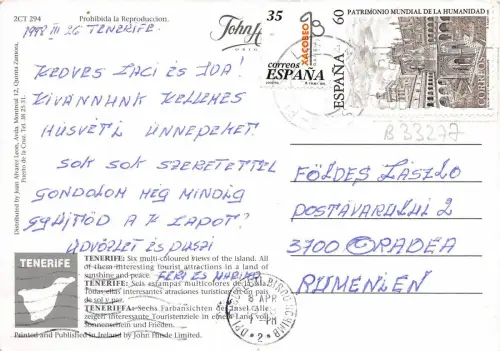 2CT 294 Prohibida la Reproduccion.
1999 III 26 TENERIFE.
KEDVES LACI ÉS IDA!
KIVÁNNUNK KELLEMES
HUSVÉTI ÜNNEPEKET.
SOK SOK SZERETETTEL
GONDOLOM MÉG MINDIG
GYÜJTÖD A K. LAPOT?
ÜDVÖZLET ÉS PUSZI
FERI ÉS MARIKA
John H
35
XACOBEO
correos
ESPAÑA
60
PATRIMONIO MUNDIAL DE LA HUMANIDAD
ESPAÑA
CORREOS
B 33277
FÖLDES LÁSZLO
DOSTÁVARULUI 2
3700 ORADEA
RUMENIEN
Distributed by Juan Alvarez Leon, Avda Montreal 12, Quinta Zamora,
Puerto de la Cruz. Tel. 38 25 31.
TENERIFE
TENERIFE: Six multi-coloured views of the island. All
of them interesting tourist attractions in a land of
sunshine and peace.
TENERIFE: Seis estampas multicolores de la isla.
Todas ellas interesantes atracciones turísticas de un país
de sol y paz.
TENERIFFA: Sechs Farbansichten der Insel. Alle
zeigen interessante Touristenziele in einem Land voll
Sonnenschein und Frieden.
Printed and Published in Ireland by John Hinde Limited.
8 APR
PM
2